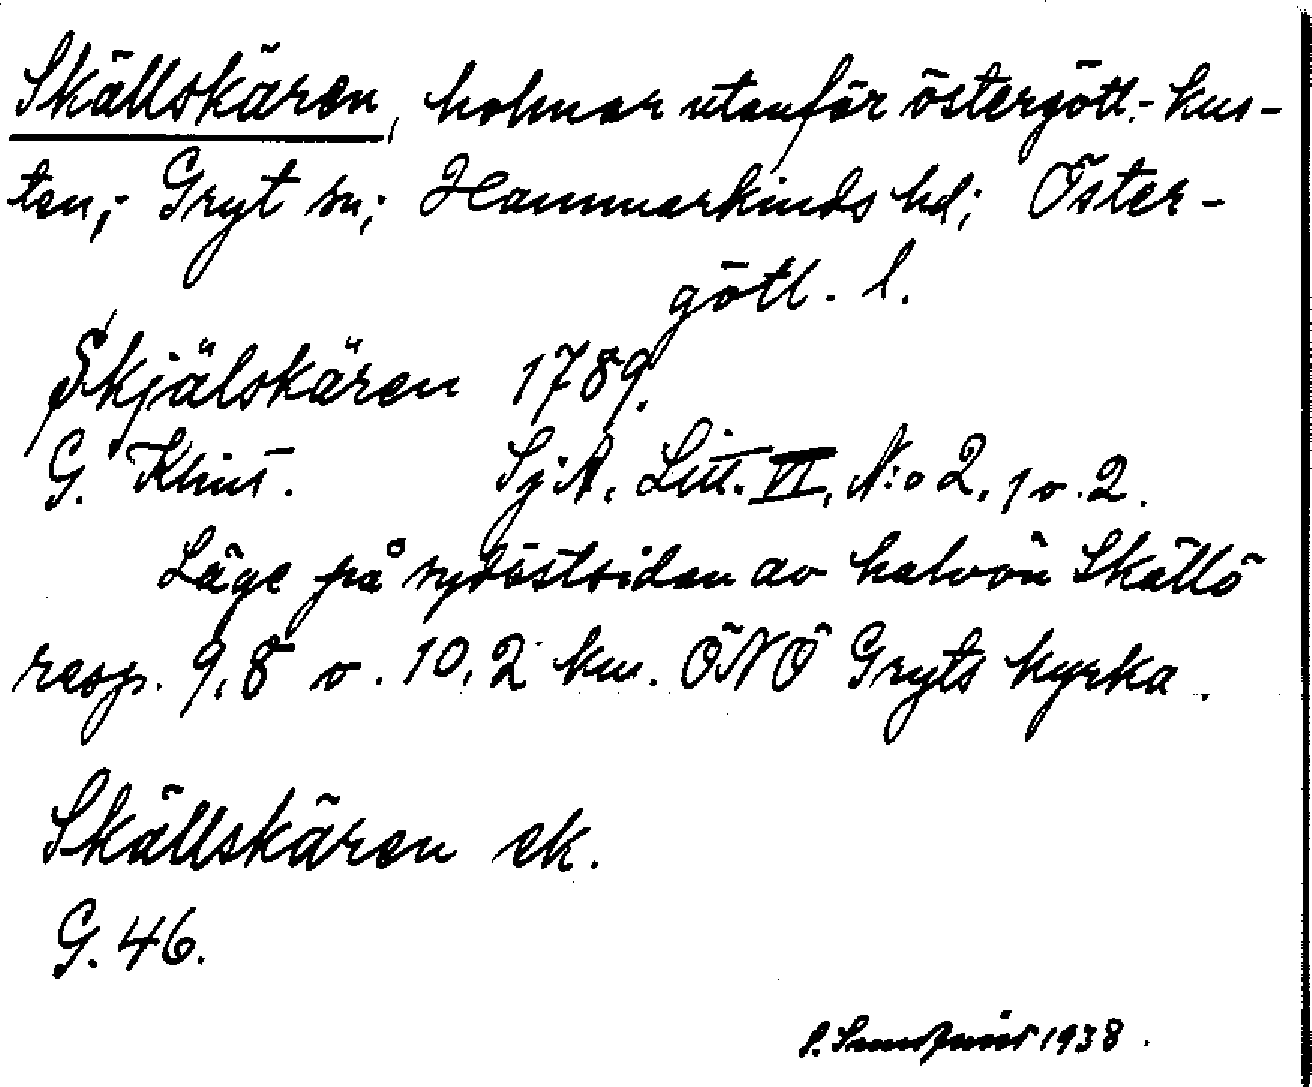 Skällskären, holmar utanför östergötl.- kus-
ten; Gryt sn; Hammarkinds hd; Öster-
götl. l.
Skjälskären 1789.
G. Klint. SjA, Litt. VI, N:o 2, 1 o. 2.
Läge på sydöstsidan av halvön Skällö
resp. 9,8 o. 10,2 km. ÖNÖ Gryts kyrka.
Skällskären ek.
G. 46.
1938.